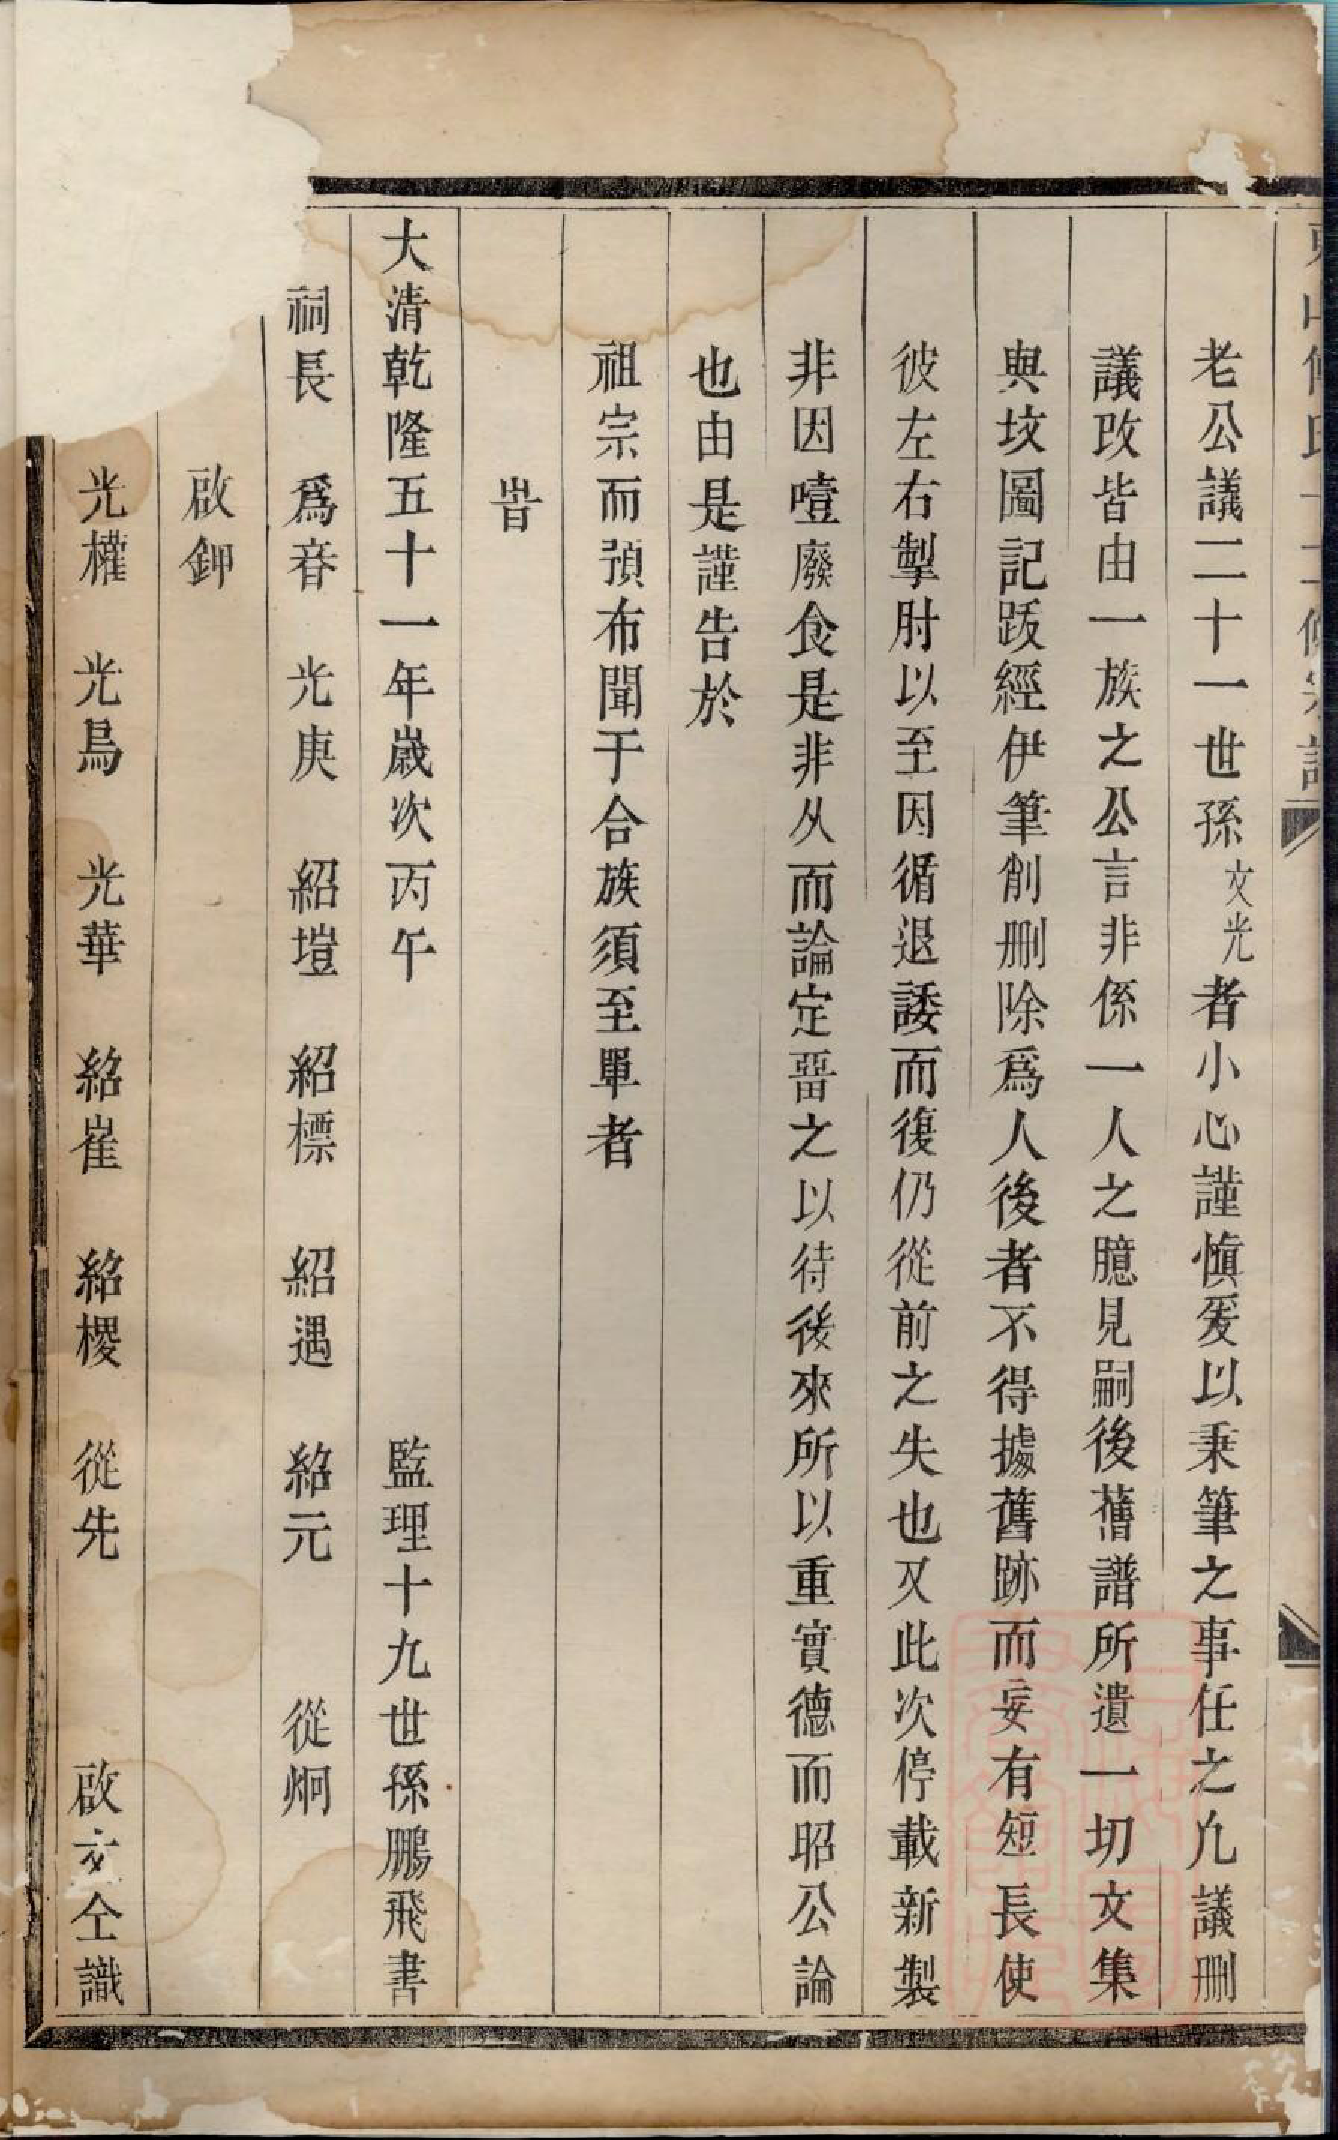 老公議二十一世孫文光者小心謹慎爰以秉筆之事任之凢議刪
議改皆由一族之公言非係一人之臆見嗣後舊譜所遺一切文集
與坟圖記跋經伊筆削刪除爲人後者不得據舊跡而妄有短長使
彼左右掣肘以至因循退諉而復仍從前之失也又此次停載新製
非因噎廢食是非从而論定畱之以待後來所以重實德而昭公論
也由是謹告於
祖宗而預布聞于合族須至單者
旹
大清乾隆五十一年歲次丙午 監理十九世孫鵬飛書
祠長 爲音 光庚 紹塏 紹標 紹遇 紹元 從炯
啟鉀
光權 光舃 光華 紹崔 紹稷 從先 啟文仝識